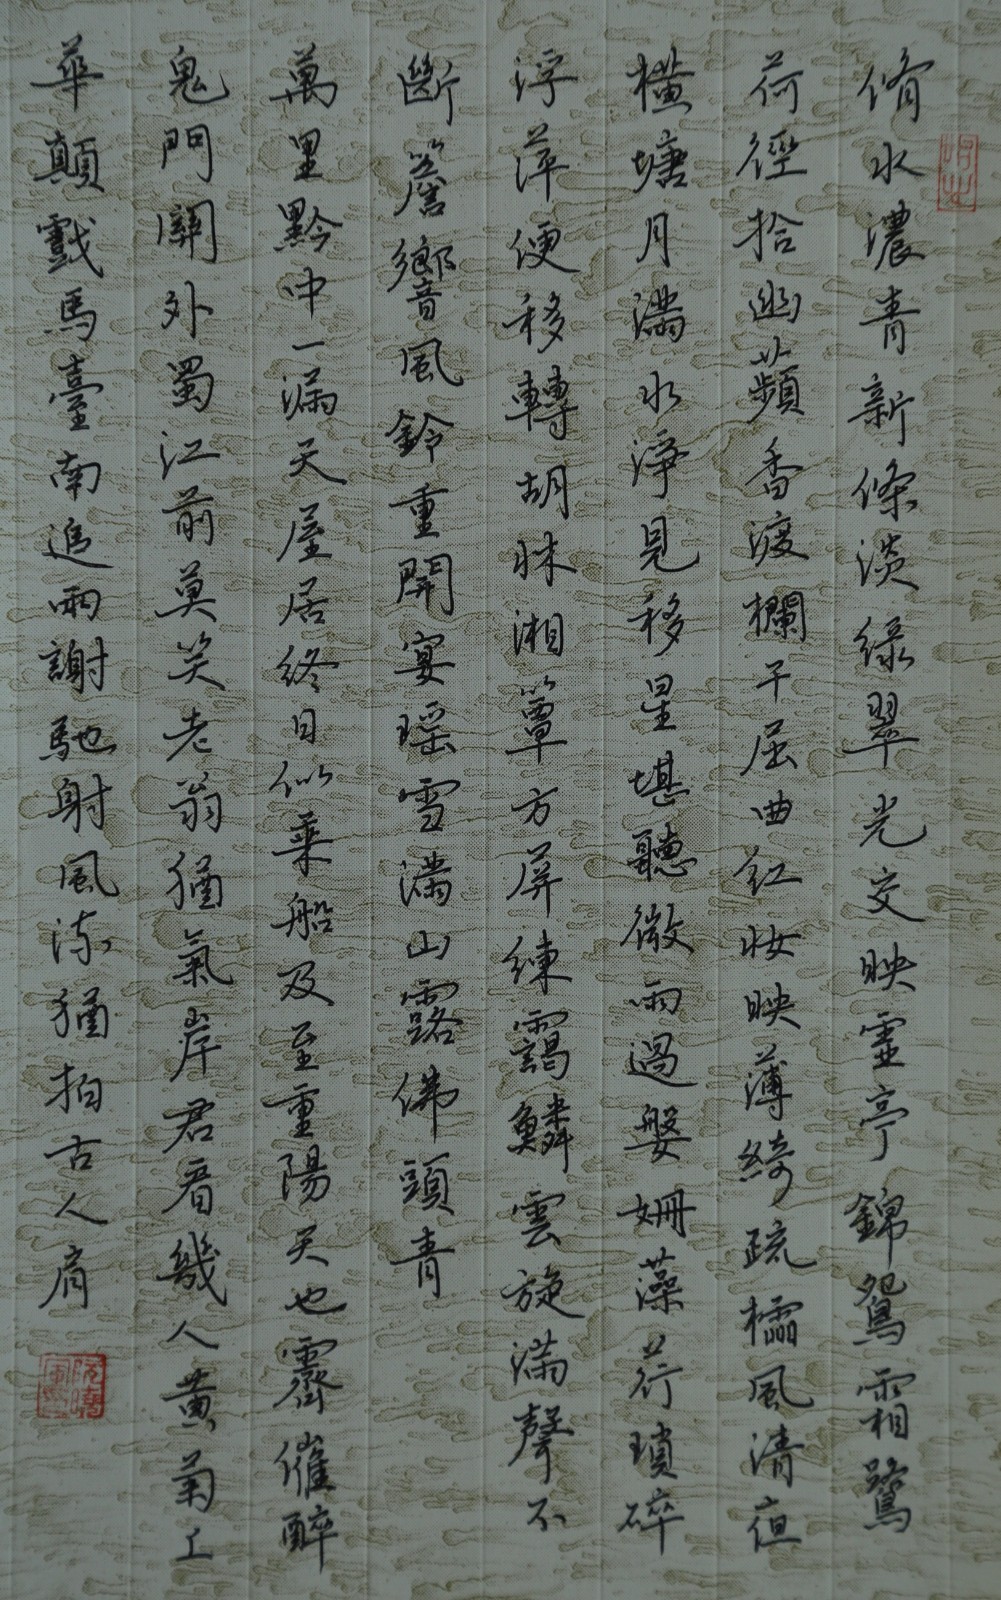 脩水濃青新條淡綠翠光交映靈亭錦鴛霜鷺
荷徑拾幽蘋香渡欄干屈曲紅妝映薄綺疏櫺風清夜
橫塘月滿水淨見移星堪聽微雨過媻姍藻荇瑣碎
浮萍便移轉胡牀湘簟方屏練靄鱗雲旋滿聲不
斷簷響風鈴重開宴瑤雪滿山露佛頭青
萬里黔中一漏天屋居終日似乘船及至重陽天也霽催醉
鬼門關外蜀江前莫笑老翁猶氣岸君看幾人黃菊上
華顛戲馬臺南追兩謝馳射風流猶拍古人肩